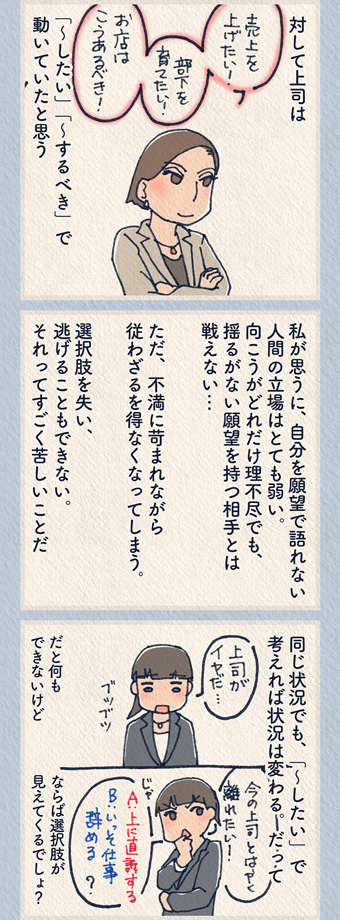 対して上司は
売上を
上げたい!
部下を
育てたい!
お店は
こうあるべき!
「〜したい」「〜するべき」で
動いていたと思う
私が思うに、自分を願望で語れない
人間の立場はとても弱い。
向こうがどれだけ理不尽でも、
揺るがない願望を持つ相手とは
戦えない…
ただ、不満に苛まれながら
従わざるを得なくなってしまう。
選択肢を失い、
逃げることもできない。
それってすごく苦しいことだ
同じ状況でも、「〜したい」で
考えれば状況は変わる。だって
上司が
イヤだ…
ブツブツ
だと何も
できないけど
今の上司とはやく
離れたい!
じゃ
A:上に直談する
B:いっそ仕事
辞める?
ならば選択肢が
見えてくるでしょ?